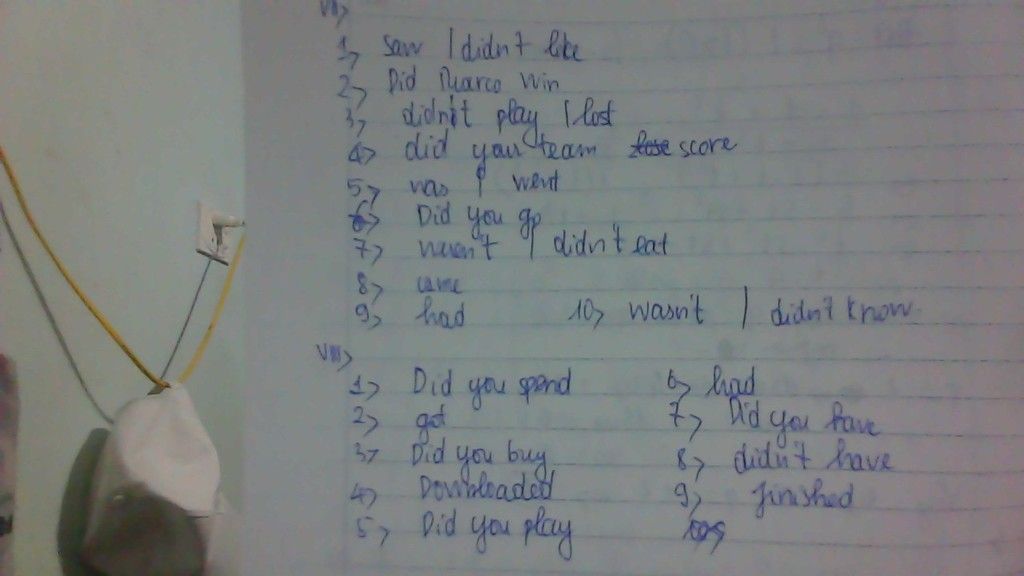 VII>
1> saw | didn't like
2> Did Marco win
3> didn't play | lost
4> did your team score
5> was | went
6> Did you go
7> weren't | didn't eat
8> came
9> had 10> wasn't | didn't know
VIII>
1> Did you spend 6> had
2> got 7> Did you have
3> Did you buy 8> didn't have
4> Downloaded 9> finished
5> Did you play